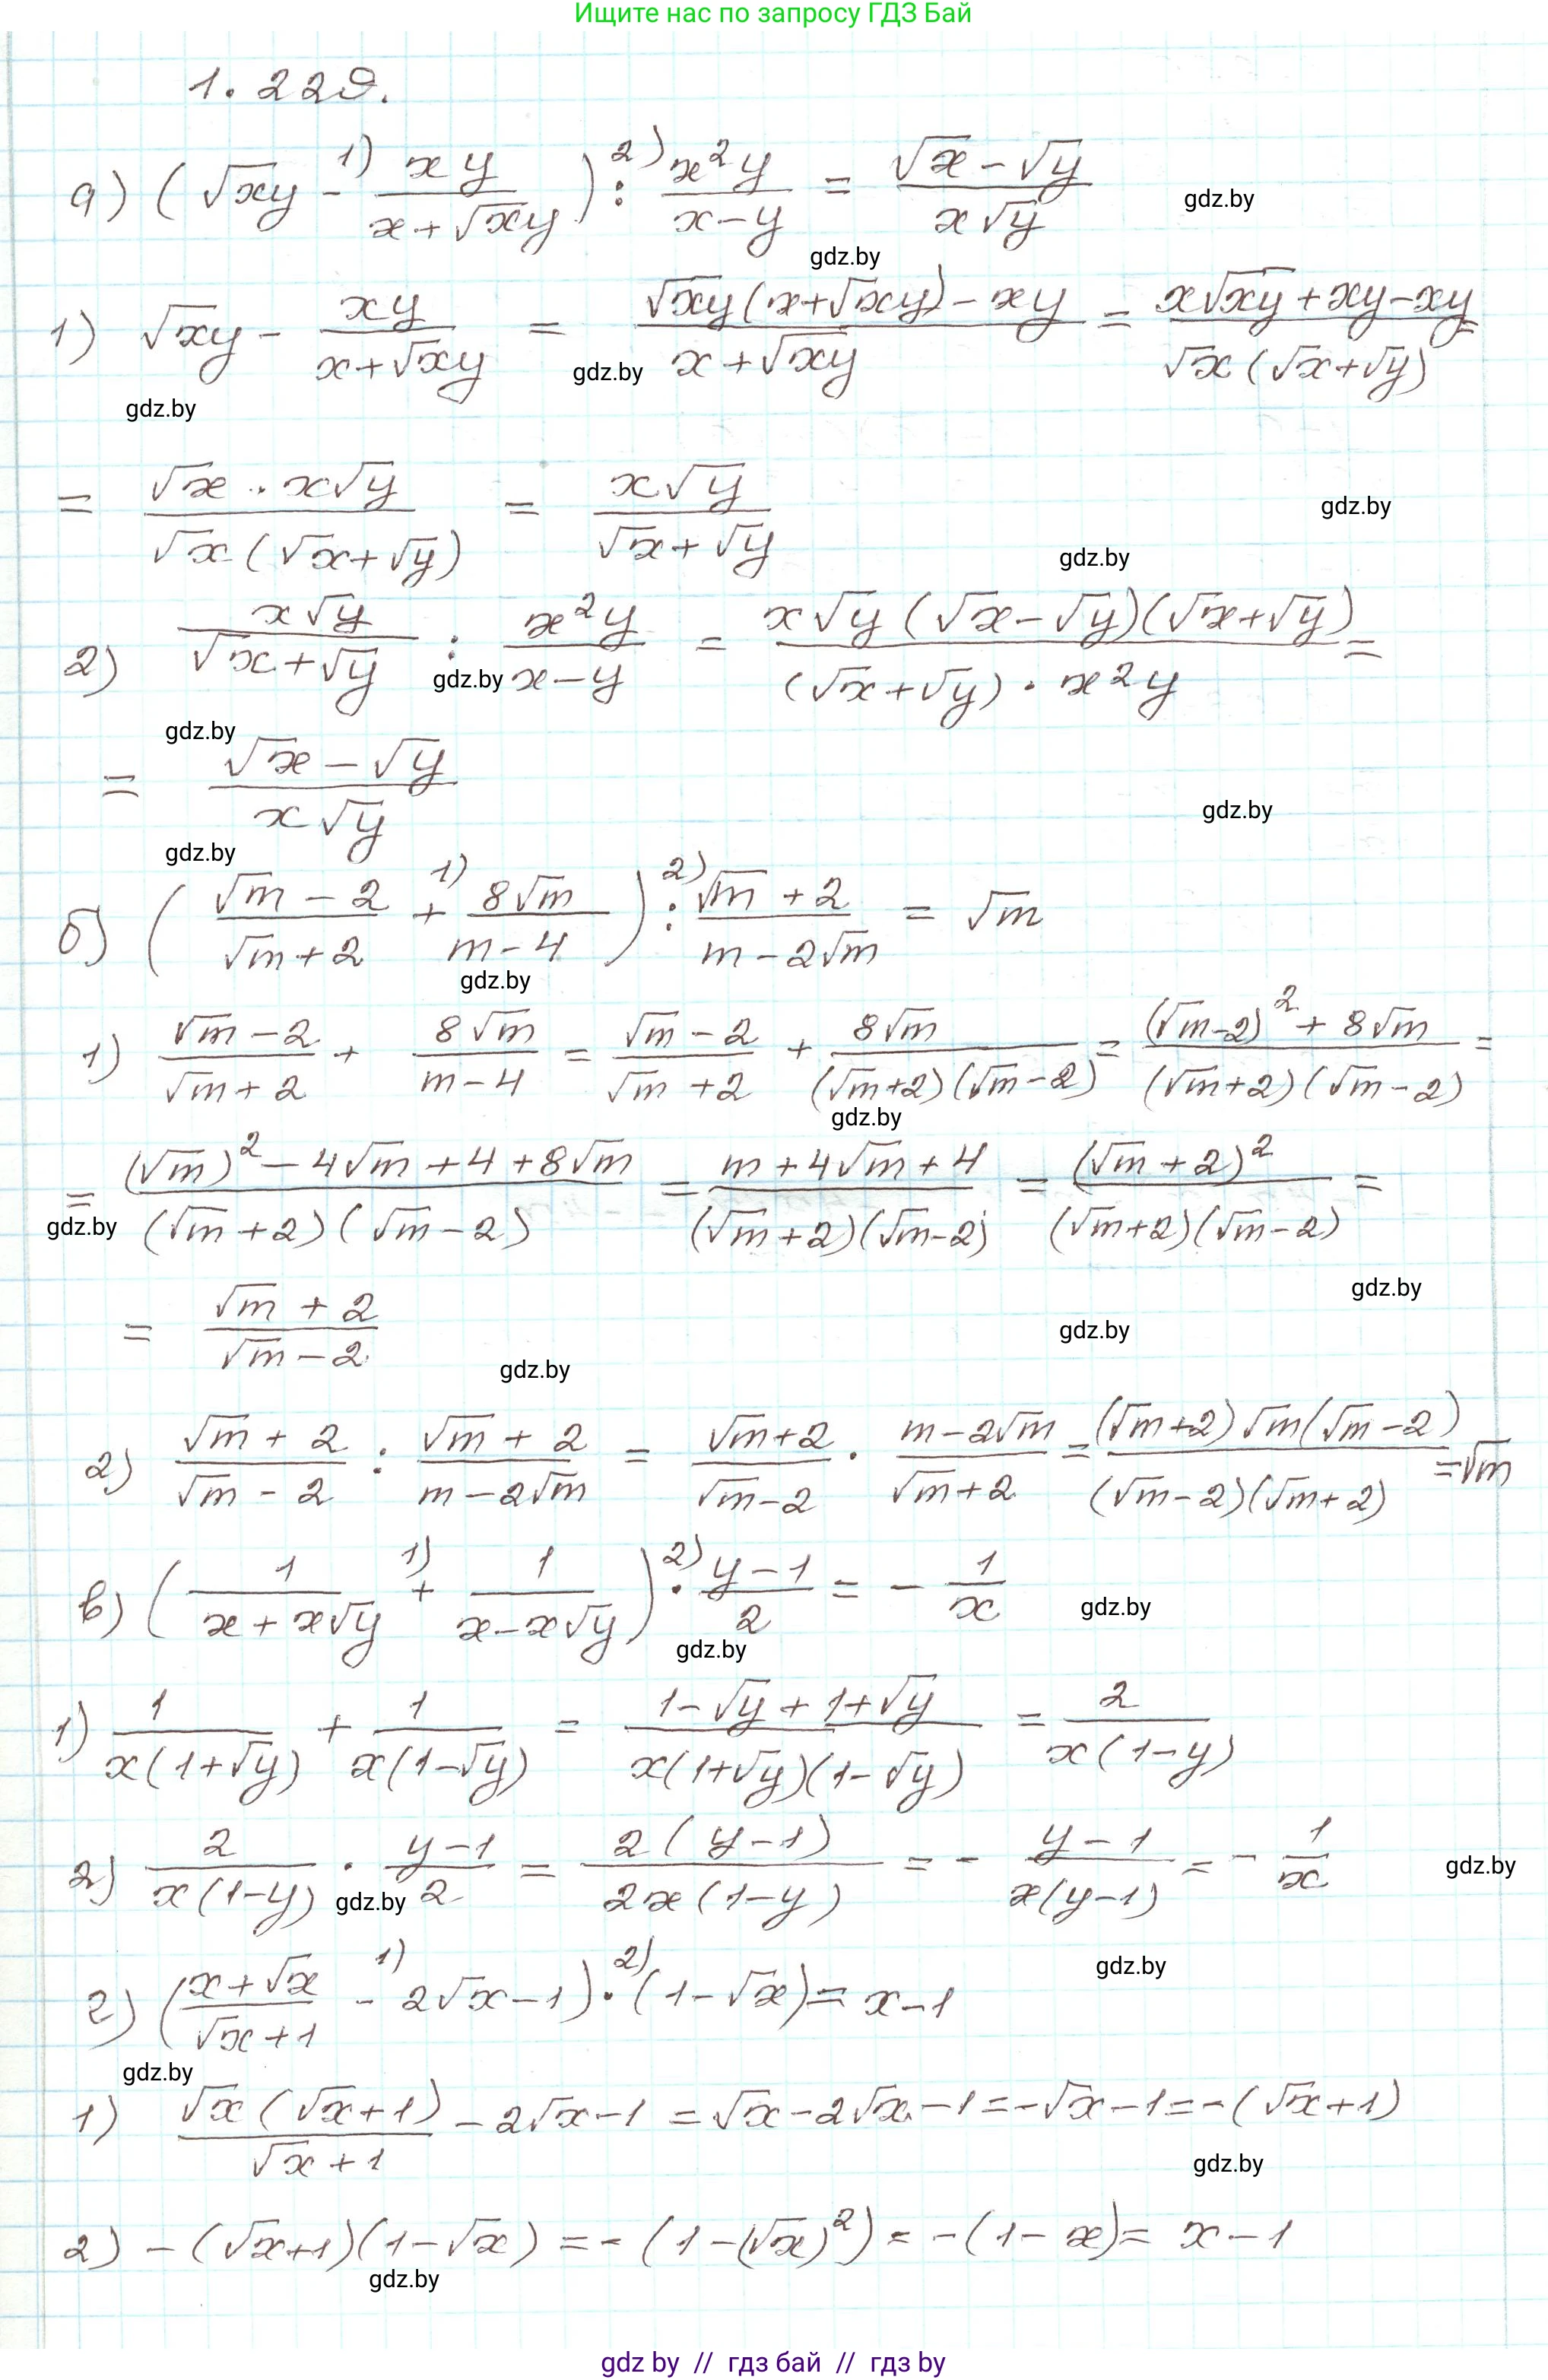 Ищите нас по запросу ГДЗ Бай
1.229.
а) (√xy - xy/(x+√xy)) : x²y/(x-y) = (√x-√y)/(x√y)
1) √xy - xy/(x+√xy) = (√xy(x+√xy)-xy)/(x+√xy) = (x√xy+xy-xy)/(√x(√x+√y)) =
= (√x·x√y)/(√x(√x+√y)) = x√y/(√x+√y)
2) x√y/(√x+√y) : x²y/(x-y) = (x√y(√x-√y)(√x+√y))/((√x+√y)·x²y) =
= (√x-√y)/(x√y)
б) ((√m-2)/(√m+2) + 8√m/(m-4)) : (√m+2)/(m-2√m) = √m
1) (√m-2)/(√m+2) + 8√m/(m-4) = (√m-2)/(√m+2) + 8√m/((√m+2)(√m-2)) = ((√m-2)²+8√m)/((√m+2)(√m-2)) =
= ((√m)²-4√m+4+8√m)/((√m+2)(√m-2)) = (m+4√m+4)/((√m+2)(√m-2)) = (√m+2)²/((√m+2)(√m-2)) =
= (√m+2)/(√m-2)
2) (√m+2)/(√m-2) : (√m+2)/(m-2√m) = (√m+2)/(√m-2) · (m-2√m)/(√m+2) = ((√m+2)√m(√m-2))/((√m-2)(√m+2)) = √m
в) (1/(x+x√y) + 1/(x-x√y)) · (y-1)/2 = -1/x
1) 1/(x(1+√y)) + 1/(x(1-√y)) = (1-√y+1+√y)/(x(1+√y)(1-√y)) = 2/(x(1-y))
2) 2/(x(1-y)) · (y-1)/2 = 2(y-1)/(2x(1-y)) = -(y-1)/(x(y-1)) = -1/x
г) ((x+√x)/(√x+1) - 2√x-1)·(1-√x) = x-1
1) √x(√x+1)/(√x+1) - 2√x-1 = √x-2√x-1 = -√x-1 = -(√x+1)
2) -(√x+1)(1-√x) = -(1-(√x)²) = -(1-x) = x-1
gdz by // гдз бай // гдз by